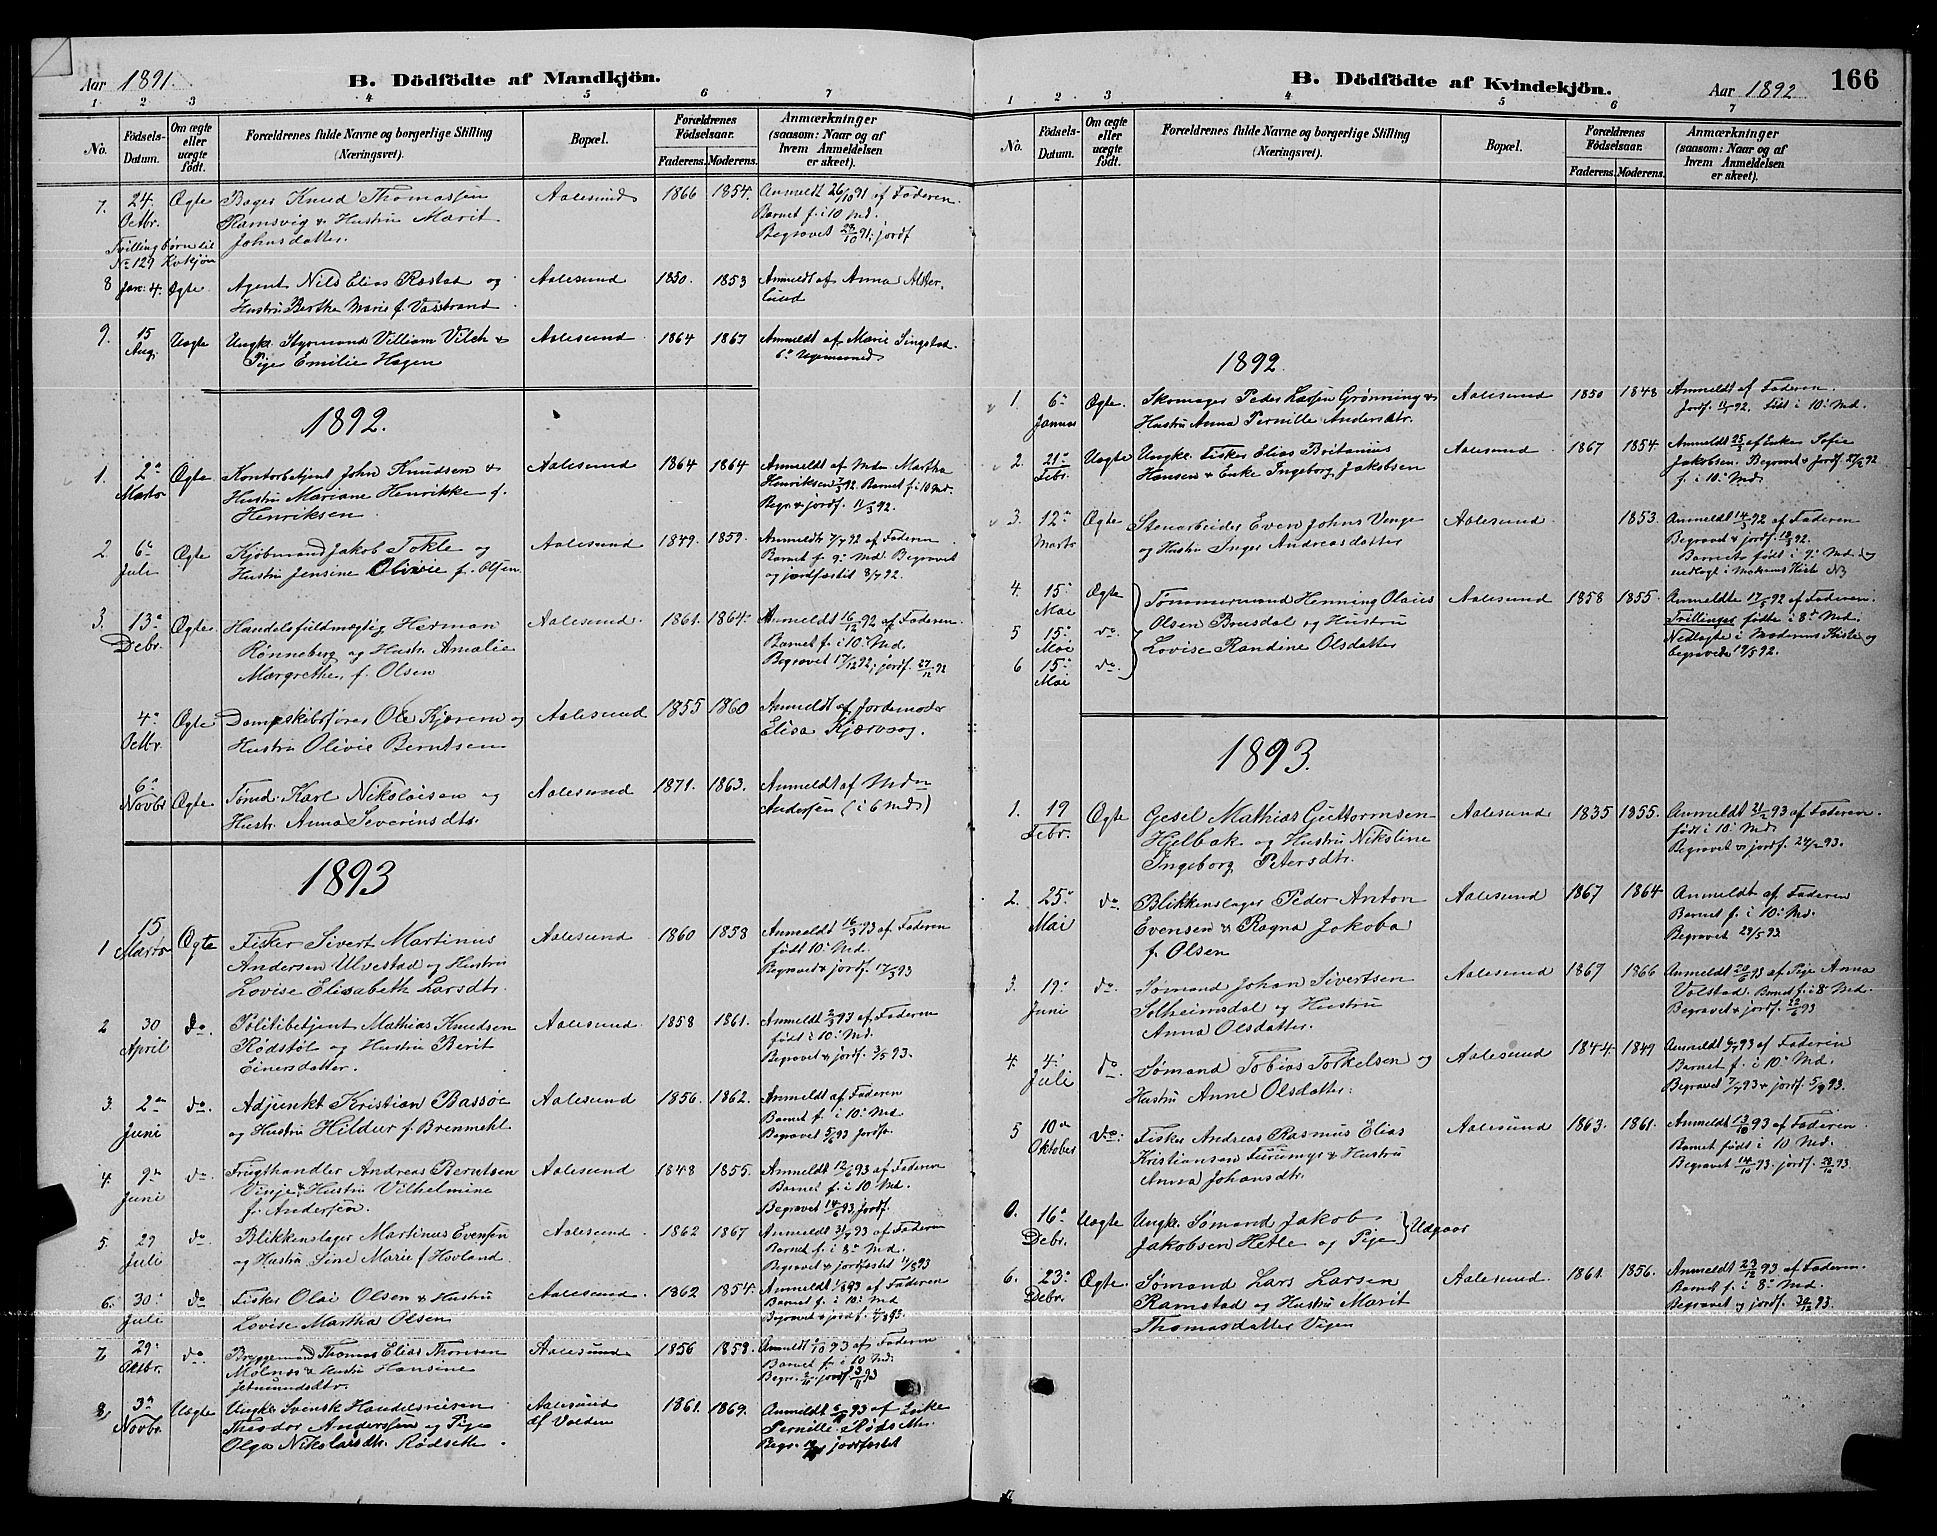 Aar 1891.
B. Dödfödte af Mandkjön.
1. 2 3 4 5 6 7
No.
Födsels-Datum.
Om ægte eller uægte födt.
Forældrenes fulde Navne og borgerlige Stilling (Næringsvei).
Bopæl.
Forældrenes Födselsaar.
Faderens. Moderens.
Anmærkninger (saasom: Naar og af hvem Anmeldelsen er skeet).
7. 24. Octbr. Ægte Bager Knud Thomassen Aalesund 1866 1854. Anmeldt 26/10 91 af Faderen.
Ramsvig & Hustru Marit Barnet f. i 10 Md.
Johnsdatter. Begravet 29/10 91; jordf
Tvillingbørn til
No 129 Kvkjøn
8 Jan: 4. Ægte Agent Nils Elias Rastad og Aalesund 1850. 1853 Anmeldt af Anna Alster,
Hustru Berthe Marie f. Vasstrand lund
9. 15 Aug. Uægte Ungk. Styrmand Villiam Vilch & Aalesund 1864 1867 Anmeldt af Marie Singstad.
Pige Emilie Hagen
1892.
1. 2den Marts Ægte Kontorbetjent John Knudsen & Aalesund 1864 1864 Anmeldt af Md. Martha
Hustru Mariane Henrikke f. Henriksen 7/3 92. Barnet f. i 10 Md.
Henriksen Begr. & jordf. 11/3 92.
2 6te Juli Ægte Kjøbmand Jakob Tokle og Aalesund 1849. 1859. Anmeldt 7/7 92 af Faderen
Hustru Jensine Olivie f. Olsen Barnet f. 9de Md. Begravet
og jordfæstet 8/7 92.
3. 13de Debr. Ægte Handelsfuldmægtig Herman Aalesund. 1861. 1864. Anmeldt 16/12 92 af Faderen.
Rønneberg og Hustru Amalie Barnet f. i 10 Md.
Margrethe, f. Olsen Begravet 17/12 92; jordf. 27/12 92
4de Octbr. Ægte Dampskibsfører Ole Kjærem og Aalesund 1855 1860 Anmeldt af Jordemoder
Hustru Olivie Berntsen Elisa Kjærvaag.
6te Novbr. Ægte Tømd. Karl Nikolaisen og Aalesund 1871. 1863. Anmeldt af Md.
Hustr. Anna Severinsdtr. Andersen (i 6 Md.)
1893
1 15 Marts Ægte Fisker Sivert Martinus Aalesund 1860 1858 Anmeldt 16/3 93 af Faderen
Andersen Ulvestad og Hustru født 10. Md.
Lovise Elisabeth Larsdtr. Begravet & jordf. 17/3 93
2 30 April do. Politibetjent Mathias Knudsen Aalesund. 1858 1861. Anmeldt 2/5 93 af Faderen
Rødstøl og Hustru Berit født i 10: Md.
Einersdatter. Begravet & jordf. 3/5 93.
3. 2den Juni do. Adjunkt Kristian Bassøe Aalesund 1856. 1862. Anmeldt af Faderen
og Hustru Hildur f. Brenmehl Barnet f. i 10: Md.
Begravet 5/6 93 jordfs.
4. 9de Juni do. Frugthandler Andreas Berntsen Aalesund 1848 1855. Anmeldt 12/6 93 af Faderen
Vinje & Hustru Vilhelmine Barnet f. i 10 Md.
f. Andersen. Begravet 14/6 93 jordf.
5. 29 Juli do Blikkenslager Martinus Evensen Aalesund 1862 1867 Anmeldt 31/7 93 af Faderen
og Hustru Sine Marie f Hovland. Barnet f. i 8de Md.
Begravet & jordfæstet 4/8 93
6. 30. Juli do Fisker Olai Olsen & Hustru Aalesund. 1862 1854. Anmeldt 1/8 93 af Faderen
Lovise Martha Olsen Barnet f. i 10. Md
Begravet & jordf. 4/8 93.
7. 29. Oktbr. do Bryggemand Thomas Elias Thoresen Aalesund 1856 1858. Anmeldt 93 af Faderen
Molnes & Hustru Hansine Barnet f. i 10 Md.
Jetmundsdtr. Begr. jordf 93
8. 3de Novbr. Uægte Ungk. Svensk Handelsreisen Aalesund 1861. 1869. Anmeldt 93 af Enke
Theodor Anderssen og Pige af Volden Pernille Rødseth.
Olga Nikolaisdtr. Rødseth. Begr. jordfæstet
B. Dödfödte af Kvindekjön.
Aar 1892
166
1 2 3 4 5 6 7
No.
Födsels-Datum.
Om ægte eller uægte födt.
Forældrenes fulde Navne og borgerlige Stilling (Næringsvei).
Bopæl.
Forældrenes Födselsaar.
Faderens. Moderens.
Anmærkninger (saasom: Naar og af hvem Anmeldelsen er skeet).
1892.
1. 6te Januar Ægte. Skomager Peder Larsen Grønning & Aalesund 1850 1848 Anmeldt af Faderen.
Hustru Anna Pernille Andersdtr. Jordf. 92. Født i 10: Md.
2. 21de Febr. Uægte Ungk. Fisker Elias Britanius Aalesund 1867 1854. Anmeldt 25/2 af Enke Sofie
Hansen & Enke Ingeborg Jakobsen Jakobsen. Begravet & jordf. 27/2 92
f. i 10: Md.
3. 12te Marts Ægte Stenarbeider Even Johns Venge Aalesund. 1853. Anmeldt 14/3 92 af Faderen
og Hustru Inger Andreasdatter Begravet & jordf. 18/3 92.
Barnet født i 9de Md. og
nedlagt i Moderens Kiste
4. 15. Mai Ægte Tømmermand Henning Olaus Aalesund 1858 1855. Anmeldte 17/5 92 af Faderen.
5 15de Mai do. Olsen Brusdal og Hustru Trillinger fødte i 8de Md.
6 15de Mai do. Lovise Randine Olsdatter Nedlagte i Moderens Kiste og
begravede 19/5 92.
1893.
1. 19 Febr. Ægte Gjesel Mathias Guttormsen Aalesund. 1835 1855. Anmeldt 21/2 93 af Faderen.
Hjelbak og Hustru Nikoline født i 10: Md.
Ingeborg Petersdtr. Begravet & jordf. 24/2 93.
2. 25de Mai do. Blikkenslager Peder Anton Aalesund 1867 1864 Anmeldt af Faderen
Evensen & Ragna Jakoba Barnet f. i 10: Md.
f. Olsen Begravet 29/5 93.
3. 19. Juni do. Sømand Johan Sivertsen Aalesund 1867 1866 Anmeldt 20/6 93 af Pige Anna
Solheimsdal og Hustru Volstad. Barnet f. i 8de Md.
Anna Olsdatter. Begravet & jordf. 22/6 93
4. 4. Juli do. Sømand Tobias Torkelsen og Aalesund 1844. 1849 Anmeldt 6/7 93 af Faderen
Hustru Anne Olsdatter. Barnet f. i 10: Md.
Begravet 7/7 93 & jordf. 93.
5 10de Oktober do. Fisker Andreas Rasmus Elias Aalesund 1863. 1861. Anmeldt 13/10 93 af Faderen.
Kristiansen Furumyr & Hustru Barnet født i 10 Md.
Anna Johansdtr. Begravet 14/10 93. jordf. 93.
0. 16de Debr. Uægte Ungk. Sømand Jakob Udgaar
Jakobsen Hetle og Pige
6. 23de Debr. Ægte. Sømand Lars Larsen Aalesund 1861. 1856. Anmeldt 23/12 93 af Faderen.
Ramstad og Hustru Marit Barnet f. i 8de Md.
Thomasdatter Vigen Begravet og jordf. 30/12 93.